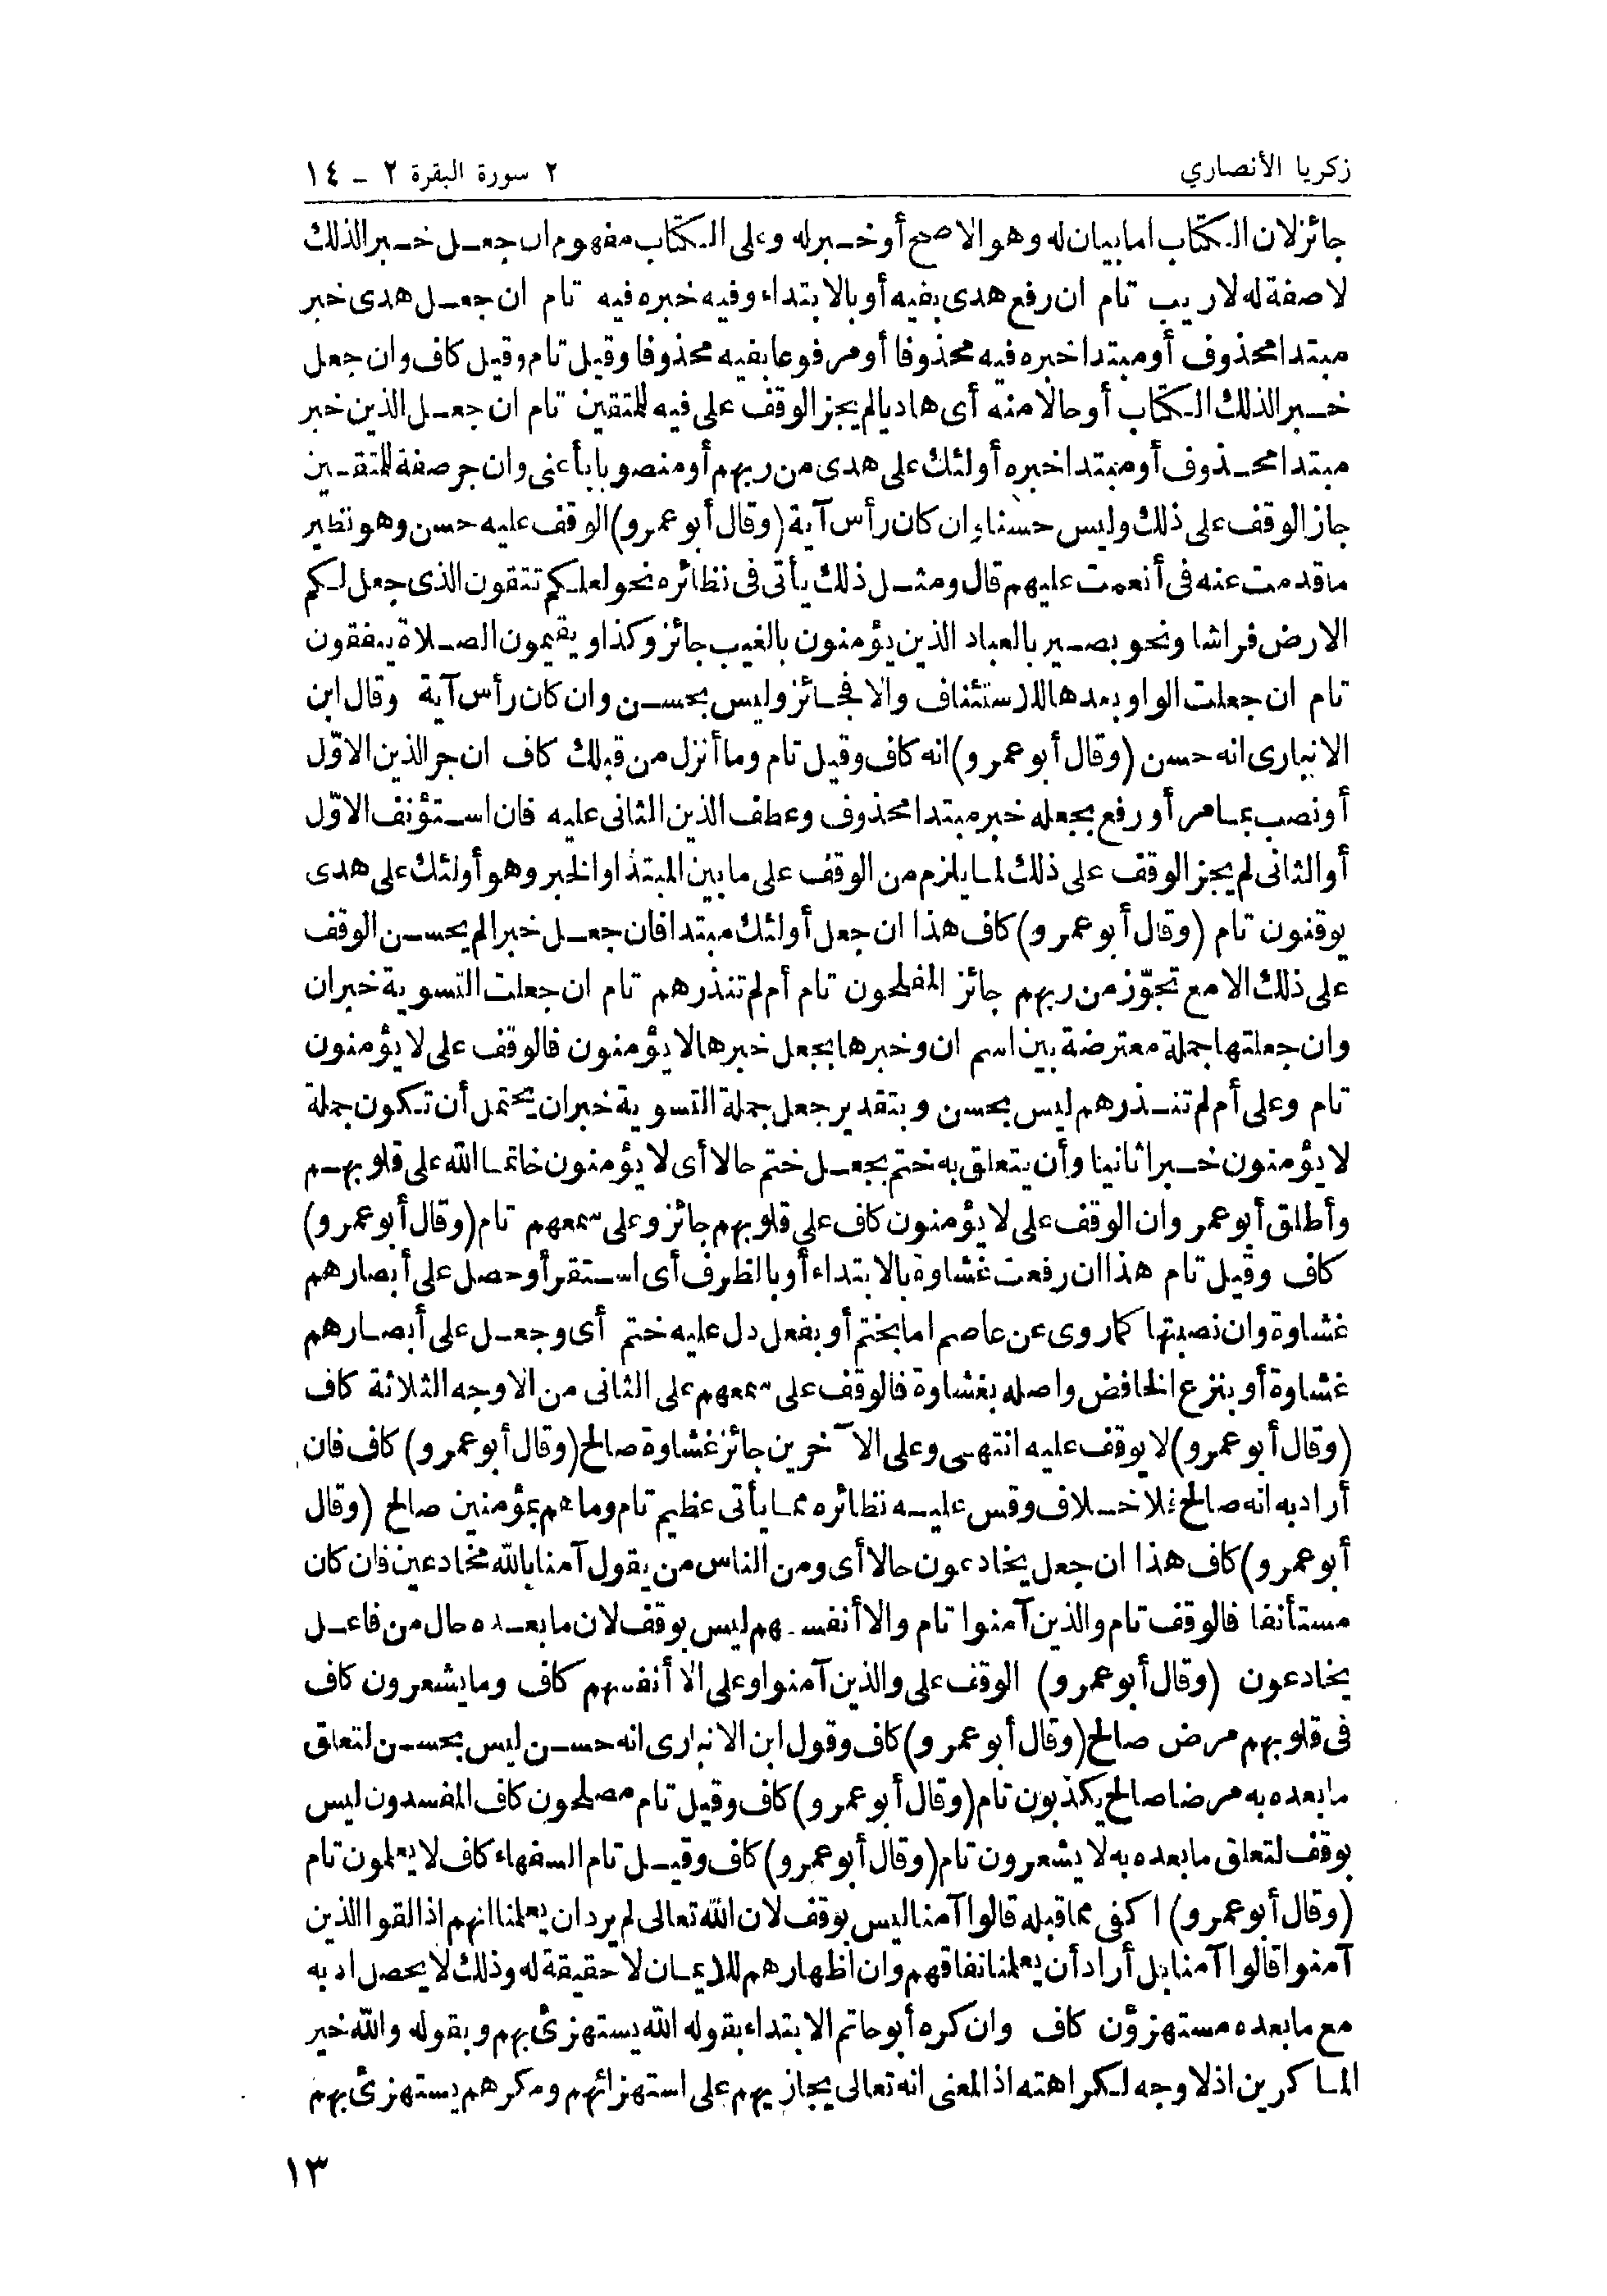 زكريا الأنصاري
٢ سورة البقرة ٢ - ١٤
جائز لان الكتاب اما بيان له وهو الاصح أو خبر له وعلى الكتاب مفهوم ان جعل خبر الذلك
لاصفة له لا ريب تام ان رفع هدى بفيه أو بالابتداء وفيه خبره فيه تام ان جعل هدى خبر
مبتدا محذوف أو مبتدا خبره فيه محذوفا أو مرفوعا بفيه محذوفا وقيل تام وقيل كاف وان جعل
خبر الذلك الكتاب أو حالا منه أى هاديا لم يجز الوقف على فيه للمتقين تام ان جعل الذين خبر
مبتدا محذوف أو مبتدا خبره أولئك على هدى من ربهم أو منصوبا بأعنى وان جر صفة للمتقين
جاز الوقف على ذلك وليس حسنا وان كان رأس آية (وقال أبو عمرو) الوقف عليه حسن وهو نظير
ما قدمت عنه فى أنعمت عليهم قال ومثل ذلك يأتى فى نظائره نحو لعلكم تتقون الذى جعل لكم
الارض فراشا ونحو بصير بالعباد الذين يؤمنون بالغيب جائز وكذا ويقيمون الصلاة ينفقون
تام ان جعلت الواو بعدها للاستئناف والا فجائز وليس بحسن وان كان رأس آية وقال ابن
الانبارى انه حسن (وقال أبو عمرو) انه كاف وقيل تام وما أنزل من قبلك كاف ان جر الذين الاوّل
أو نصب بما مر أو رفع بجعله خبر مبتدا محذوف وعطف الذين الثانى عليه فان استؤنف الاوّل
أو الثانى لم يجز الوقف على ذلك لما يلزم من الوقف على ما بين المبتدا والخبر وهو أولئك على هدى
يوقنون تام (وقال أبو عمرو) كاف هذا ان جعل أولئك مبتدا فان جعل خبرا لم يحسن الوقف
على ذلك الا مع تجوّز من ربهم جائز المفلحون تام أم لم تنذرهم تام ان جعلت التسوية خبر ان
وان جعلتها جملة معترضة بين اسم ان وخبرها بجعل خبرها لا يؤمنون فالوقف على لا يؤمنون
تام وعلى أم لم تنذرهم ليس بحسن وبتقدير جعل جملة التسوية خبر ان يحتمل أن تكون جملة
لا يؤمنون خبرا ثانيا وأن يتعلق به ختم بجعل ختم حالا أى لا يؤمنون خاتما الله على قلوبهم
وأطلق أبو عمر وان الوقف على لا يؤمنون كاف على قلوبهم جائز وعلى سمعهم تام (وقال أبو عمرو)
كاف وقيل تام هذا ان رفعت غشاوة بالابتداء أو بالظرف أى استقر أو حصل على أبصارهم
غشاوة وان نصبتها كما روى عن عاصم اما بختم أو بفعل دل عليه ختم أى وجعل على أبصارهم
غشاوة أو بنزع الخافض واصله بغشاوة فالوقف على سمعهم على الثانى من الاوجه الثلاثة كاف
(وقال أبو عمرو) لا يوقف عليه انتهى وعلى الآخرين جائز غشاوة صالح (وقال أبو عمرو) كاف فان
أراد به انه صالح فلا خلاف وقس عليه نظائره مما يأتى عظيم تام وما هم بمؤمنين صالح (وقال
أبو عمرو) كاف هذا ان جعل يخادعون حالا أى ومن الناس من يقول آمنا بالله مخادعين فان كان
مستأنفا فالوقف تام والذين آمنوا تام والا أنفسهم ليس بوقف لان ما بعده حال من فاعل
يخادعون (وقال أبو عمرو) الوقف على والذين آمنوا وعلى الا أنفسهم كاف وما يشعرون كاف
فى قلوبهم مرض صالح (وقال أبو عمرو) كاف وقول ابن الانبارى انه حسن ليس بحسن لتعلق
ما بعده به مرضا صالح يكذبون تام (وقال أبو عمرو) كاف وقيل تام مصلحون كاف المفسدون ليس
بوقف لتعلق ما بعده به لا يشعرون تام (وقال أبو عمرو) كاف وقيل تام السفهاء كاف لا يعلمون تام
(وقال أبو عمرو) اكفى مما قبله قالوا آمنا ليس بوقف لان الله تعالى لم يرد ان يعلمنا انهم اذا لقوا الذين
آمنوا قالوا آمنا بل أراد أن يعلمنا نفاقهم وان اظهارهم للايمان لا حقيقة له وذلك لا يحصل اد به
مع ما بعده مستهزؤن كاف وان كره أبو حاتم الابتداء بقوله الله يستهزئ بهم وبقوله والله خير
الماكرين اذ لا وجه لكراهته اذ المعنى انه تعالى يجازيهم على استهزائهم ومكرهم يستهزئ بهم
١٣